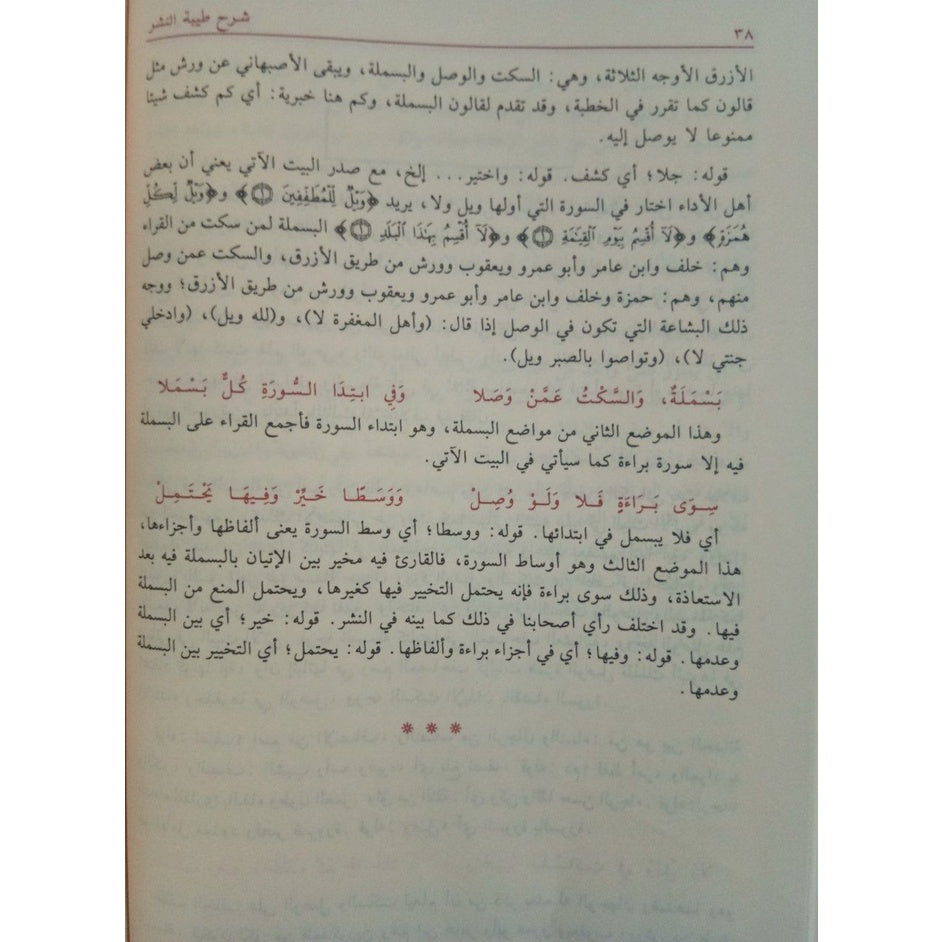 ٣٨
شرح طيبة النشر
الأزرق الأوجه الثلاثة، وهي: السكت والوصل والبسملة، ويبقى الأصبهاني عن ورش مثل
قالون كما تقرر في الخطبة، وقد تقدم لقالون البسملة، وكم هنا خبرية: أي كم كشف شيئا
ممنوعا لا يوصل إليه.
قوله: جلا؛ أي كشف. قوله: واختير... إلخ، مع صدر البيت الآتي يعني أن بعض
أهل الأداء اختار في السورة التي أولها ويل ولا، يريد ﴿وَيْلٌ لِّلْمُطَفِّفِينَ ۝١﴾ و﴿وَيْلٌ لِّكُلِّ
هُمَزَةٍ﴾ و﴿لَآ أُقْسِمُ بِيَوْمِ ٱلْقِيَٰمَةِ ۝١﴾ و﴿لَآ أُقْسِمُ بِهَٰذَا ٱلْبَلَدِ ۝١﴾ البسملة لمن سكت من القراء
وهم: خلف وابن عامر وأبو عمرو ويعقوب وورش من طريق الأزرق، والسكت عمن وصل
منهم، وهم: حمزة وخلف وابن عامر وأبو عمرو ويعقوب وورش من طريق الأزرق؛ ووجه
ذلك البشاعة التي تكون في الوصل إذا قال: (وأهل المغفرة لا)، و(لله ويل)، (وادخلي
جنتي لا)، (وتواصوا بالصبر ويل).
بَسْمَلَةٌ، وَالسَّكْتُ عَمَّنْ وَصَلا وَفِي ابتِدَا السُّورَةِ كُلٌّ بَسْمَلا
وهذا الموضع الثاني من مواضع البسملة، وهو ابتداء السورة فأجمع القراء على البسملة
فيه إلا سورة براءة كما سيأتي في البيت الآتي.
سِوَى بَرَاءَةٍ فَلا وَلَوْ وُصِلْ وَوَسَطًا خَيِّرْ وَفِيهَا يَحْتَمِلْ
أي فلا يبسمل في ابتدائها. قوله: ووسطا؛ أي وسط السورة يعنى ألفاظها وأجزاءها،
هذا الموضع الثالث وهو أوساط السورة، فالقارئ فيه مخير بين الإتيان بالبسملة فيه بعد
الاستعاذة، وذلك سوى براءة فإنه يحتمل التخيير فيها كغيرها، ويحتمل المنع من البسملة
فيها. وقد اختلف رأي أصحابنا في ذلك كما بينه في النشر. قوله: خير؛ أي بين البسملة
وعدمها. قوله: وفيها؛ أي في أجزاء براءة وألفاظها. قوله: يحتمل؛ أي التخيير بين البسملة
وعدمها.